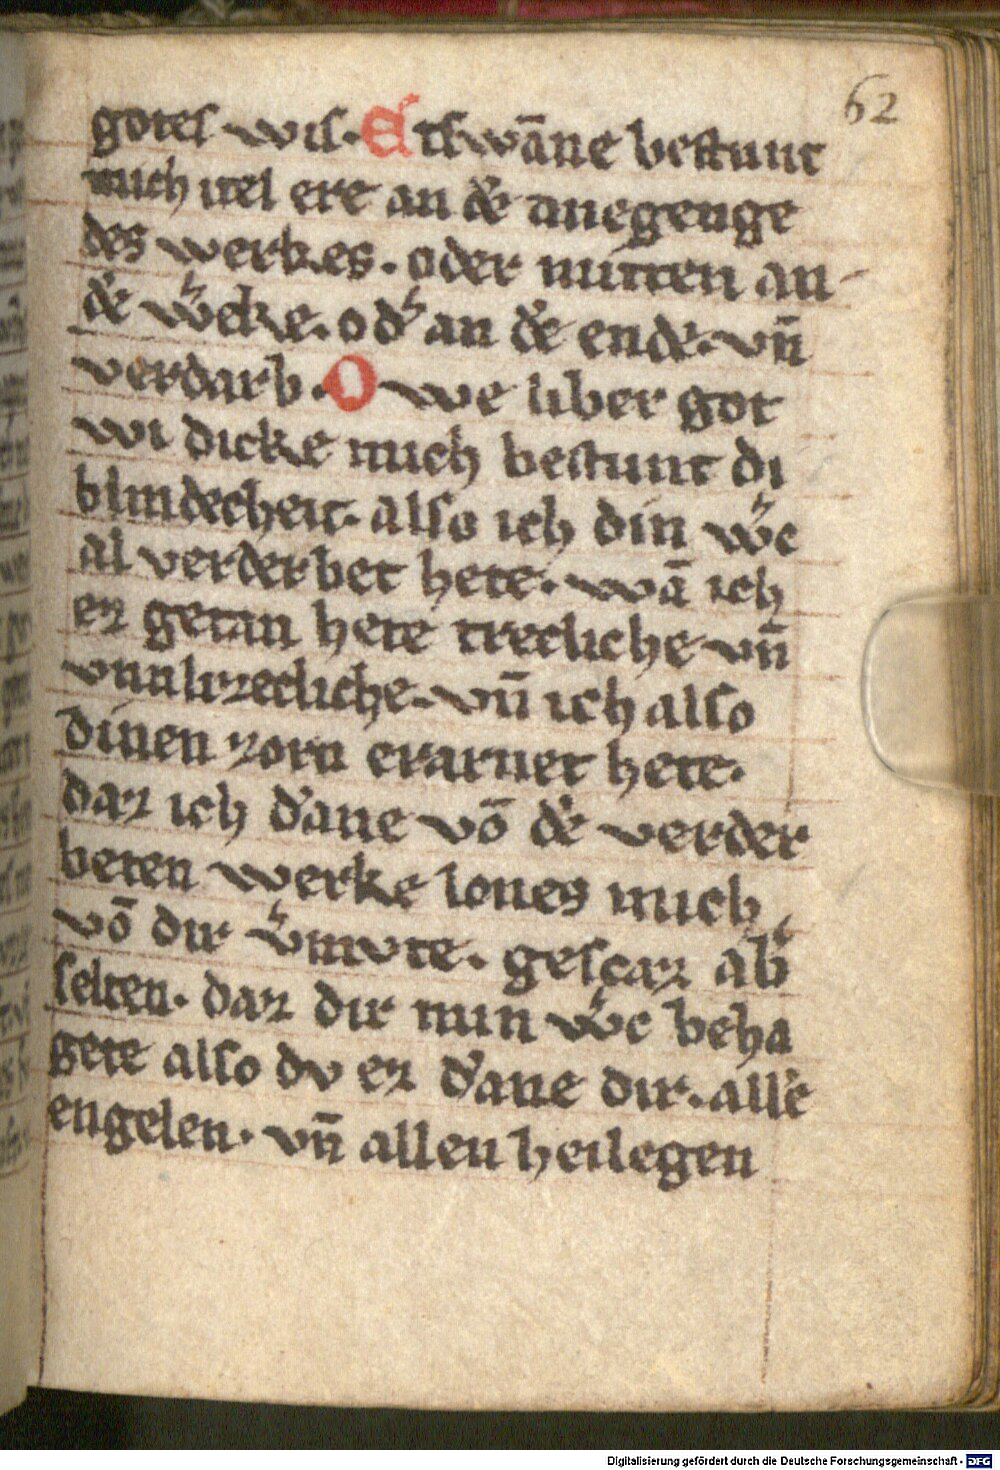 62
gotes wis. Etswāne bestunt
mich itel ere an d̾e anegenge
des werkes. oder mitten an
d̾e w̾cke. od̾ an d̾e ende. vn̄
verdarb. Owe liber got
wi dicke mich bestunt di
blindecheit. also ich din w̾c
al verderbet hete. wā ich
ez getan hete trecliche vn̄
vnulizecliche. vn̄ ich also
dinen zorn erarnet hete.
daz ich d̾ane vō d̾e verder
beten werke lones mich
vō dir v̾mvte. gescaz ab̾
selten. daz dir min w̾c beha
gete also dv ez d̾ane dir. alle̾
engelen. vn̄ allen heilegen
Digitalisierung gefördert durch die Deutsche Forschungsgemeinschaft - DFG